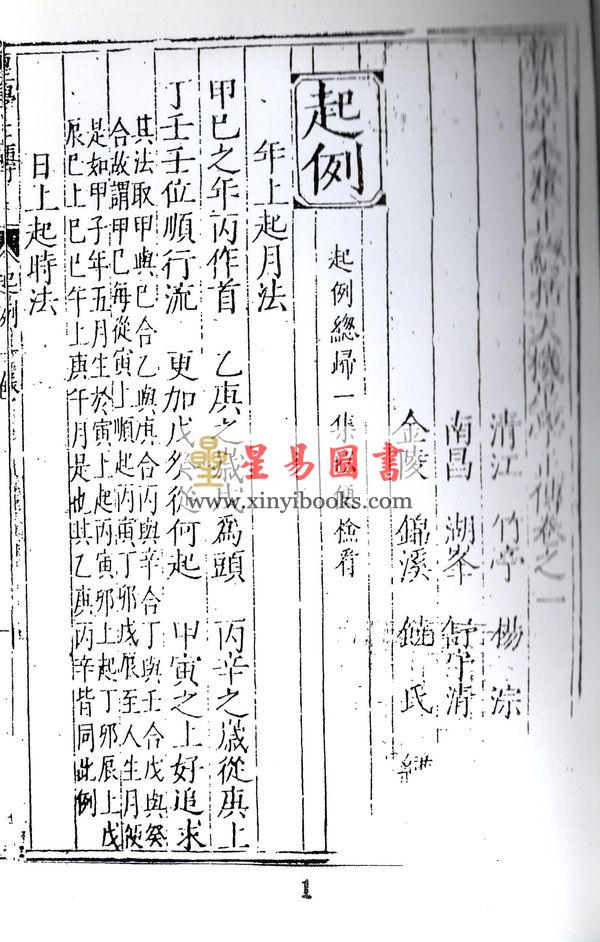 清江 竹亭 楊淙
南昌 湖峯 舒宇清
金陵 錦溪 饒氏
起例
起例總歸一集 檢看
年上起月法
甲巳之年丙作首 乙庚之歲戊為頭 丙辛之歲從庚上
丁壬壬位順行流 更加戊癸從何起 甲寅之上好追求
其法取甲與巳合乙與庚合丙與辛合丁與壬合戊與癸
合故謂甲巳每從寅上順起丙寅丁卯戊辰至人生月
是如甲子年五月生於寅上起丙寅卯上起丁卯辰上戊
辰巳上巳巳午上庚午月是也其乙庚丙辛皆同此例
日上起時法
起例
星易圖書
www.xinyibooks.com
1